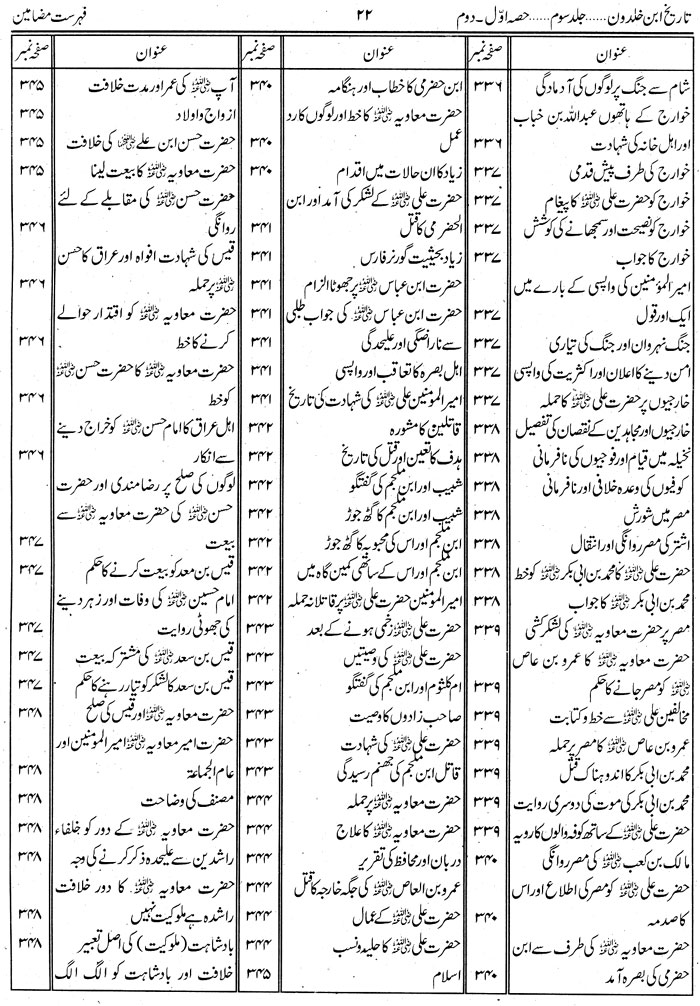 تاریخ ابن خلدون ...... جلد سوم ...... حصہ اوّل ۔ دوم
۲۲
فہرست مضامین
عنوان
صفحہ نمبر
شام سے جنگ پر لوگوں کی آمادگی ۳۳۶
خوارج کے ہاتھوں عبداللہ بن خباب
اور اہل خانہ کی شہادت ۳۳۶
خوارج کی طرف پیش قدمی ۳۳۷
خوارج کو حضرت علی رضی اللہ عنہ کا پیغام ۳۳۷
خوارج کو نصیحت اور سمجھانے کی کوشش ۳۳۷
خوارج کا جواب ۳۳۷
امیر المؤمنین کی واپسی کے بارے میں
ایک اور قول ۳۳۷
جنگ نہروان اور جنگ کی تیاری ۳۳۷
امن دینے کا اعلان اور اکثریت کی واپسی ۳۳۷
خارجیوں پر حضرت علی رضی اللہ عنہ کا حملہ ۳۳۷
خارجیوں اور مجاہدین کے نقصان کی تفصیل ۳۳۸
نخیلہ میں قیام اور فوجیوں کی نافرمانی ۳۳۸
کوفیوں کی وعدہ خلافی اور نافرمانی ۳۳۸
مصر میں شورش ۳۳۸
اشتر کی مصر روانگی اور انتقال ۳۳۸
حضرت علی رضی اللہ عنہ کا محمد بن ابی بکر رضی اللہ عنہ کو خط ۳۳۸
محمد بن ابی بکر کا جواب ۳۳۸
مصر پر حضرت معاویہ رضی اللہ عنہ کی لشکر کشی ۳۳۹
حضرت معاویہ رضی اللہ عنہ کا عمرو بن عاص
رضی اللہ عنہ کو مصر جانے کا حکم ۳۳۹
مخالفین علی رضی اللہ عنہ سے خط و کتابت ۳۳۹
عمرو بن عاص رضی اللہ عنہ کا مصر پر حملہ ۳۳۹
محمد بن ابی بکر کا اندوہناک قتل ۳۳۹
محمد بن ابی بکر کی موت کی دوسری روایت ۳۳۹
حضرت علی رضی اللہ عنہ کے ساتھ کوفہ والوں کا رویہ ۳۳۹
مالک بن کعب رضی اللہ عنہ کی مصر روانگی ۳۴۰
حضرت علی رضی اللہ عنہ کو مصر کی اطلاع اور اس
کا صدمہ ۳۴۰
حضرت معاویہ رضی اللہ عنہ کی طرف سے ابن
حضرمی کی بصرہ آمد ۳۴۰
عنوان
صفحہ نمبر
ابن حضرمی کا خطاب اور ہنگامہ ۳۴۰
حضرت معاویہ رضی اللہ عنہ کا خط اور لوگوں کا رد
عمل ۳۴۰
زیاد کا ان حالات میں اقدام ۳۴۰
حضرت علی رضی اللہ عنہ کے لشکر کی آمد اور ابن
الحضرمی کا قتل ۳۴۱
زیاد بحیثیت گورنر فارس ۳۴۱
حضرت ابن عباس رضی اللہ عنہ پر جھوٹا الزام ۳۴۱
حضرت ابن عباس رضی اللہ عنہ کی جواب طلبی ۳۴۱
سے ناراضگی اور علیحدگی ۳۴۱
اہل بصرہ کا تعاقب اور واپسی ۳۴۱
امیر المؤمنین علی رضی اللہ عنہ کی شہادت کی تاریخ ۳۴۱
قاتلین کا مشورہ ۳۴۲
ہدف کا تعین اور قتل کی تاریخ ۳۴۲
شبیب اور ابن ملجم کی گفتگو ۳۴۲
شبیب اور ابن ملجم کا گٹھ جوڑ ۳۴۲
ابن ملجم اور اس کی محبوبہ کا گٹھ جوڑ ۳۴۲
ابن ملجم اور اس کے ساتھی کمین گاہ میں ۳۴۲
امیر المومنین حضرت علی رضی اللہ عنہ پر قاتلانہ حملہ ۳۴۲
حضرت علی رضی اللہ عنہ زخمی ہونے کے بعد ۳۴۳
حضرت علی رضی اللہ عنہ کی وصیتیں ۳۴۳
ام کلثوم اور ابن ملجم کی گفتگو ۳۴۳
صاحب زادوں کا وصیت ۳۴۳
حضرت علی رضی اللہ عنہ کی شہادت ۳۴۳
قاتل ابن ملجم کی جھنم رسیدگی ۳۴۳
حضرت معاویہ رضی اللہ عنہ پر حملہ ۳۴۴
حضرت معاویہ رضی اللہ عنہ کا علاج ۳۴۴
دربان اور محافظ کی تقریر ۳۴۴
عمرو بن العاص رضی اللہ عنہ کی جگہ خارجہ کا قتل ۳۴۴
حضرت علی رضی اللہ عنہ کے عمال ۳۴۴
حضرت علی رضی اللہ عنہ کا حلیہ و نسب ۳۴۴
اسلام ۳۴۵
عنوان
صفحہ نمبر
آپ رضی اللہ عنہ کی عمر اور مدت خلافت ۳۴۵
ازواج و اولاد ۳۴۵
حضرت حسن ابن علی رضی اللہ عنہ کی خلافت ۳۴۵
حضرت معاویہ رضی اللہ عنہ کا بیعت لینا ۳۴۵
حضرت حسن رضی اللہ عنہ کی مقابلے کے لئے
روانگی ۳۴۶
قیس کی شہادت افواہ اور عراق کا حسن
رضی اللہ عنہ پر حملہ ۳۴۶
حضرت معاویہ رضی اللہ عنہ کو اقتدار حوالے
کرنے کا خط ۳۴۶
حضرت معاویہ رضی اللہ عنہ کا حضرت حسن رضی اللہ عنہ
کو خط ۳۴۶
اہل عراق کا امام حسن رضی اللہ عنہ کو خراج دینے
سے انکار ۳۴۶
لوگوں کی صلح پر رضامندی اور حضرت
حسن رضی اللہ عنہ کی حضرت معاویہ رضی اللہ عنہ سے
بیعت ۳۴۷
قیس بن سعد کو بیعت کرنے کا حکم ۳۴۷
امام حسین رضی اللہ عنہ کی وفات اور زہر دینے
کی جھوٹی روایت ۳۴۷
قیس بن سعد رضی اللہ عنہ کی مشترکہ بیعت ۳۴۷
قیس بن سعد کا لشکر کو تیار رہنے کا حکم ۳۴۷
حضرت معاویہ رضی اللہ عنہ اور قیس کی صلح ۳۴۸
حضرت امیر معاویہ رضی اللہ عنہ امیر المومنین اور
عام الجماعۃ ۳۴۸
مصنف کی وضاحت ۳۴۸
حضرت معاویہ رضی اللہ عنہ کے دور کو خلفاء ۳۴۸
راشدین سے علیحدہ ذکر کرنے کی وجہ ۳۴۸
حضرت معاویہ رضی اللہ عنہ کا دور خلافت
راشدہ ہے ملوکیت نہیں ۳۴۸
بادشاہت (ملوکیت) کی اصل تعبیر ۳۴۸
خلافت اور بادشاہت کو الگ الگ